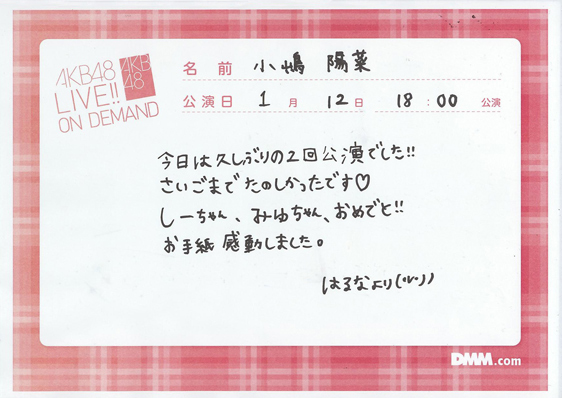 AKB48
LIVE!!
ON DEMAND
AKB
48
名前 小嶋 陽菜
公演日 1月 12日 18:00 公演
今日は久しぶりの2回公演でした!!
さいごまでたのしかったです♡
しーちゃん、みゆちゃん、おめでと!!
お手紙感動しました。
はるなより
DMM.com